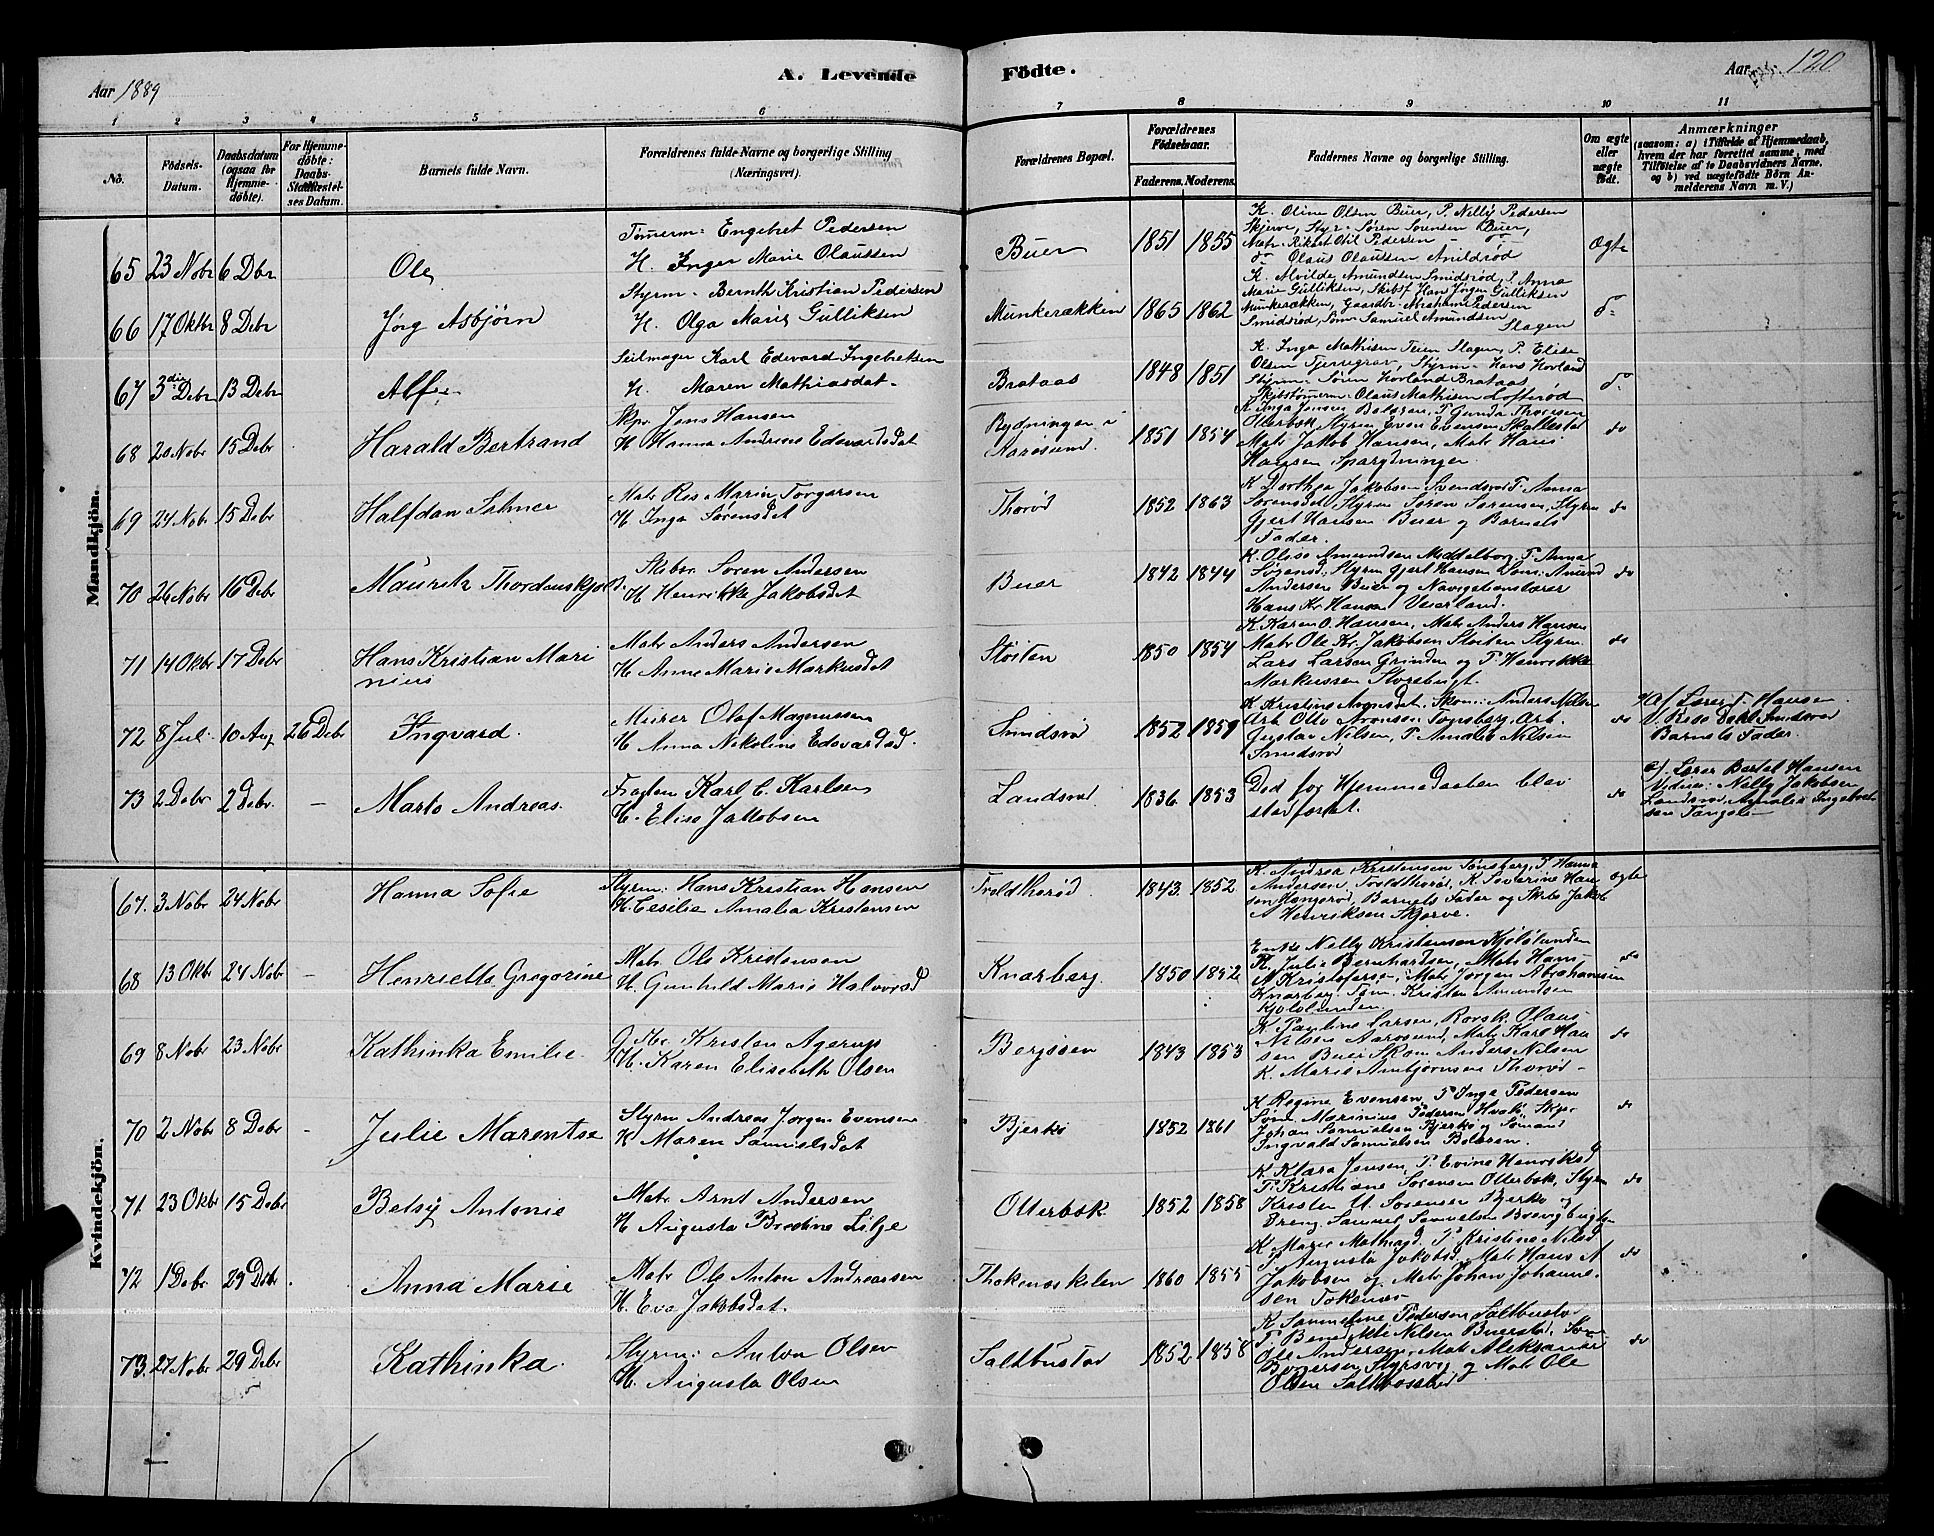 Aar 1889
A. Levende
Fødte.
Aar
120
1 2 3 4 5 6 7 8 9 10 11
No.
Fødsels-
Datum.
Daabsdatum
(ogsaa for
Hjemme-
døbte).
For Hjemme-
døbte:
Daabs-
Stadfæstel-
ses Datum.
Barnets fulde Navn.
Forældrenes fulde Navne og borgerlige Stilling
(Næringsvei).
Forældrenes Bopæl.
Forældrenes
Fødselsaar.
Faderens. Moderens.
Faddernes Navne og borgerlige Stilling.
Om ægte
eller
uægte
født.
Anmærkninger
(saasom: a) i Tilfælde af Hjemmedaab,
hvem der har forrettet samme, med
Tilføielse af to Daabsvidners Navne,
og b) ved uægtefødte Børn An-
melderens Navn m. V.)
Mandkjön.
65 23 Nobr 6 Dbr Ole
Tömerm: Engebret Pedersen
H. Inger Marie Olaussen
Buer 1851 1855
K. Oline Olsen Buer, P. Nelly Pedersen
Skjerve, Styr: Søren Sørensen Buer,
Matr. Pedersen
do Olaus Olaussen
Ægte
66 17 Oktbr 8 Debr Jörg Asbjörn
Styrm- Bernth Kristian Pedersen
H. Olga Marie Gulliksen
Munkerækken 1865 1862
K. Alvilde Amundsen Smidsrød, P. Anna
Marie Gulliksen, Skibsf Hans Jörgen Gulliksen
Munkerækken, Gaardbr. Abraham Pedersen
Smidsrød, Søm. Samuel Amundsen
Slagen
67 3die Debr 13 Debr Alf
Seilmager Karl Edevard Ingebretsen
H. Maren Mathiasdat-
Brataas 1848 1851
K. Inga Mathisen Teien Slagen, P. Elise
Olsen Tjerregrav, Styrm- Hans Hovland
Styrm- Søren Hovland Brataas,
Skibstömerm- Olaus Mathisen Lofterød
68 20 Nobr 15 Debr Harald Bertrand
Skpr. Jens Hansen
H Hanna Andrine Edvardsdat
Rydningen i
Aarøsund. 1851 1854
K Inga Jensen Bolæren, P Gunda Thoresen
Otterbæk Styrm Even Evensen Skallestad
Matr Jakob Hansen, Matr Hans
Hansen
do
69 24 Nobr 15 Debr Halfdan
Matr Marin Torgersen
H Inga Sørensdat
Thorød 1852 1863
K Dorthea Jakobsen Svendsrød P. Anna
Sørensdat Styrm Søren Sørensen, Styrm
Gjert Hansen Buer og Barnets
Fader.
do
70 26 Nobr 16 Debr Mauritz Thordenskjold.
Skibsr. Søren Andersen
H Henrikke Jakobsdat
Buer 1842 1844
K. Olise Amundsen Middelborg, P. Anna
Styrm Gjert Hansen
Andersen Buer og Navigationslærer
Hans Kr. Hansen Veierland.
do
71 14 Oktbr 17 Debr Hans Kristian Mari
nius
Matr Anders Andersen
H Anne Marie Markusdat
Støiten 1850 1854
K Karen O. Hansen, Matr Anders Hansen
Matr Ole Kr. Jakobsen Støiten Styrm
Lars Larsen Grinden og P Henrikke
Markussen Storebugt.
do
72 8 Jul. 10 Aug 26 Debr Ingvard.
Murer Olaf Magnussen
H Anna Nikoline Edsvardsd.
Smidsrød 1852 1859
K Kristine Skom: Anders Nilsen
Arb Olle Aronsen Tønsberg, Arb.
Gustav Nilsen, P Amalie Nilsen
Smidsrød
do
Af Lærer F. Hansen
Dahl Smidsrød
Barnets Fader.
73 2 Debr. 2 Debr. – Marto Andreas.
Karl C. Karlsen
H. Elise Jakobsen
Landsrød. 1836 1853
Død før Hjemmedaaben blev
stadfæstet.
do
Lærer Bertel Hansen
Nelly Jakobsen
Landsrød Amalie Ingebret
sen
Kvindekjön.
67. 3 Nobr 24 Nobr Hanna Sofie
Styrm: Hans Kristian Hansen
H. Cesilie Amalia Kristensen
Troldthorød 1843. 1852
K. Andrea Kristensen Tønsberg, P Hanna
Andersen, Troldthorød, K. Severine Han
sen Barnets Fader og Skibs Jakob
Henriksen Skjerve.
ægte
68 13 Oktbr 24 Nobr – Henriette Gregorine
Matr Ole Kristensen
H. Gunhild Marie Halvorsd
Knarberg. 1850 1852
Enke Nelly Kristensen Kjølølunden
K. Julie Bernhardsen, Matr Hans
Kristofersen, Matr Jørgen Abrahamsen
Knarberg. Tøm. Kristen Amundsen
Kjølølunden
do
69 8 Nobr 23 Nobr Kathinka Emilie
Kristen Agerup
H. Karen Elisabeth Olsen
Bergsøen 1843 1853
K Pauline Larsen, Olaus
Nilsen Aarøsund, Matr Karl Han
sen Buer Skom Anders Nilsen
K. Marie Arnbjørnsen Thorød –
do
70 2 Nobr 8 Debr – Julie Marentse
Styrm Andreas Jørgen Evensen
H Maren Samuelsdat
Bjerkø 1852 1861
K Regine Evensen, P Inga Pedersen
Søm. Marinius Pedersen
Johan Samuelsen Bjerkø og Sømand
Ingvald Samuelsen Bolæren.
do
71 23 Oktbr 15 Debr Betsy Antonie
Matr Arnt Andersen
H Augusta
Otterbæk 1852 1858
K Klara Jensen, P. Evine Henriksd
P. Kristiane Sørensen Otterbæk, Styrm
Kristen Sørensen Bjerkø og
Dreng Samuel Samuelsen
do
72 1 Debr 29 Debr Anna Marie
Matr Ole Anton Andreassen
H. Eva Jakobsdat.
1860 1855
K Marie P Kristine Nilsd
P Augusta Jakobsd. Matr Hans A
Jakobsen og Matr Johan Johanne-
sen
do
73. 27 Nobr 29 Debr Kathinka.
Styrm: Anton Olsen
H. Augusta Olsen
1852 1858
K Pedersen
P. Nilsen
Ole Andersen, Matr Aleksander
og Matr Ole
Olsen
do